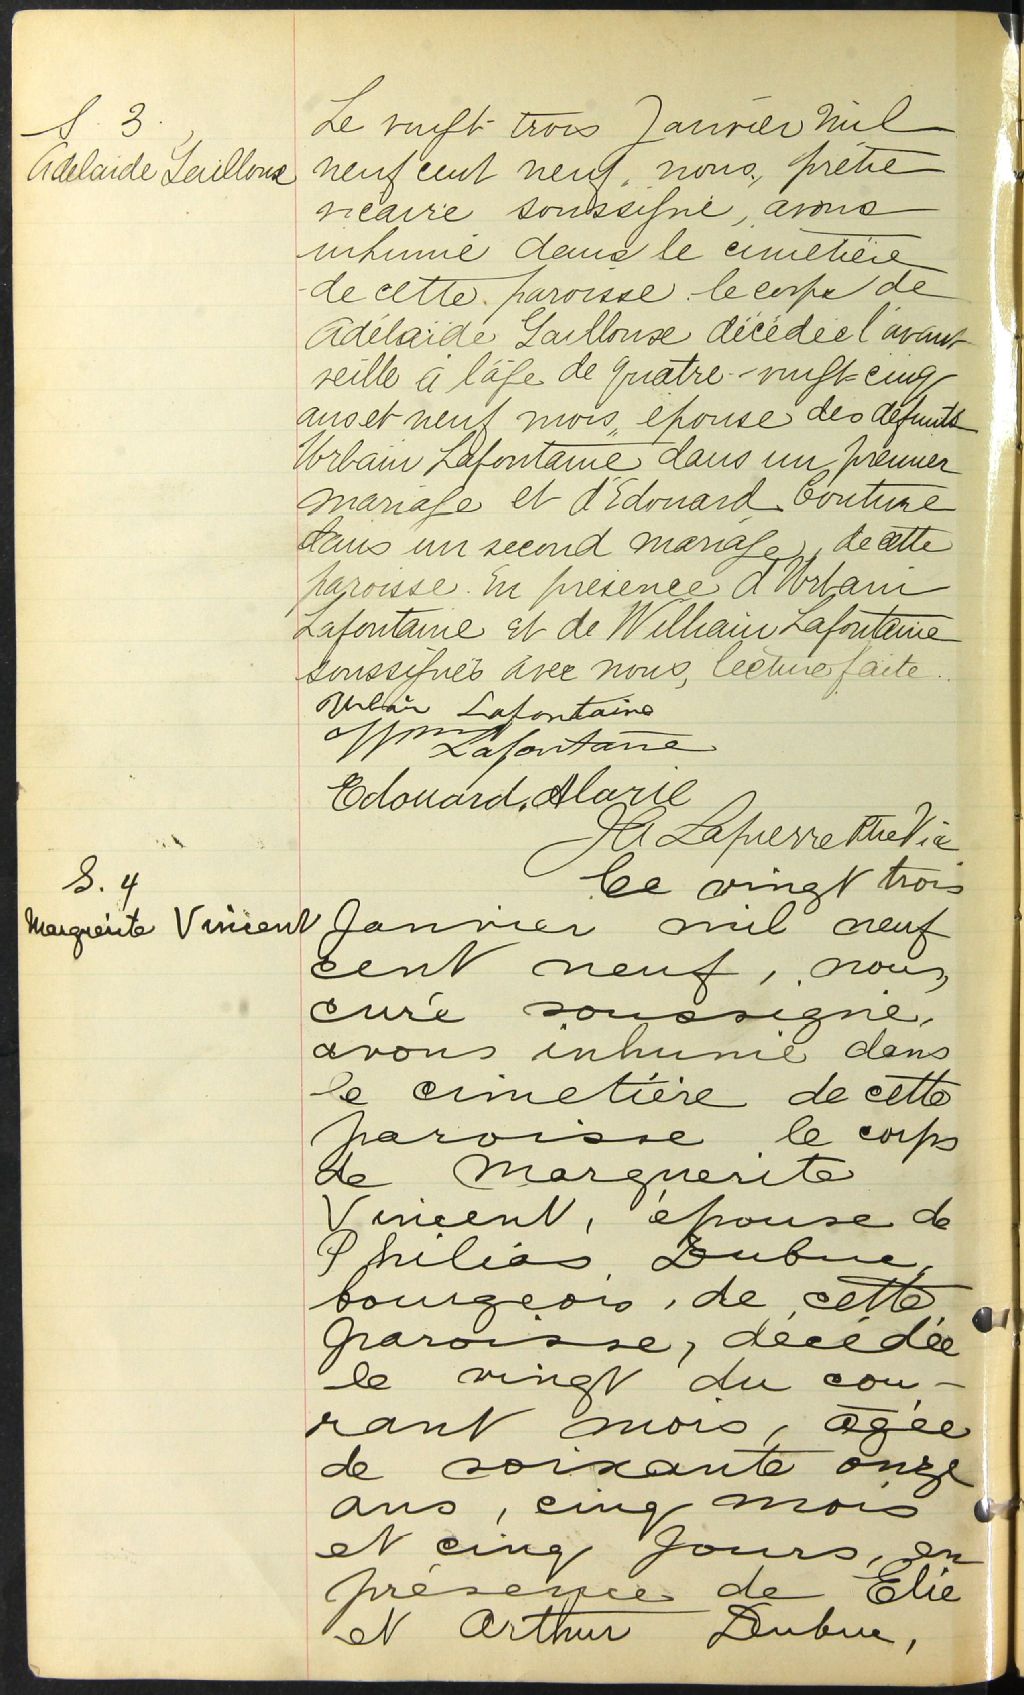 S. 3.
Adelaide Laillouse
Le vingt trois Janvier mil
neuf cent neuf, nous, prêtre
vicaire soussigné, avons
inhumé dans le cimetière
de cette paroisse le corps de
Adélaïde Laillouse décédée l'avant
veille à l'âge de quatre-vingt-cinq
ans et neuf mois, épouse des défunts
Urbain Lafontaine dans un premier
mariage et d'Edouard Couture
dans un second mariage, de cette
paroisse. En présence d'Urbain
Lafontaine et de William Lafontaine
soussignés avec nous, lecture faite.
Urbain Lafontaine
Wm Lafontaine
Edouard. Alarie
JA Lapierre Ptre Vic
S. 4
Marguerite Vincent
Le vingt trois
Janvier mil neuf
cent neuf, nous,
curé soussigné,
avons inhumé dans
le cimetière de cette
paroisse le corps
de Marguerite
Vincent, épouse de
Philias Dubuc,
bourgeois, de cette
paroisse, décédée
le vingt du cou-
rant mois, âgée
de soixante onze
ans, cinq mois
et cinq jours, en
présence de Elie
et Arthur Dubuc,